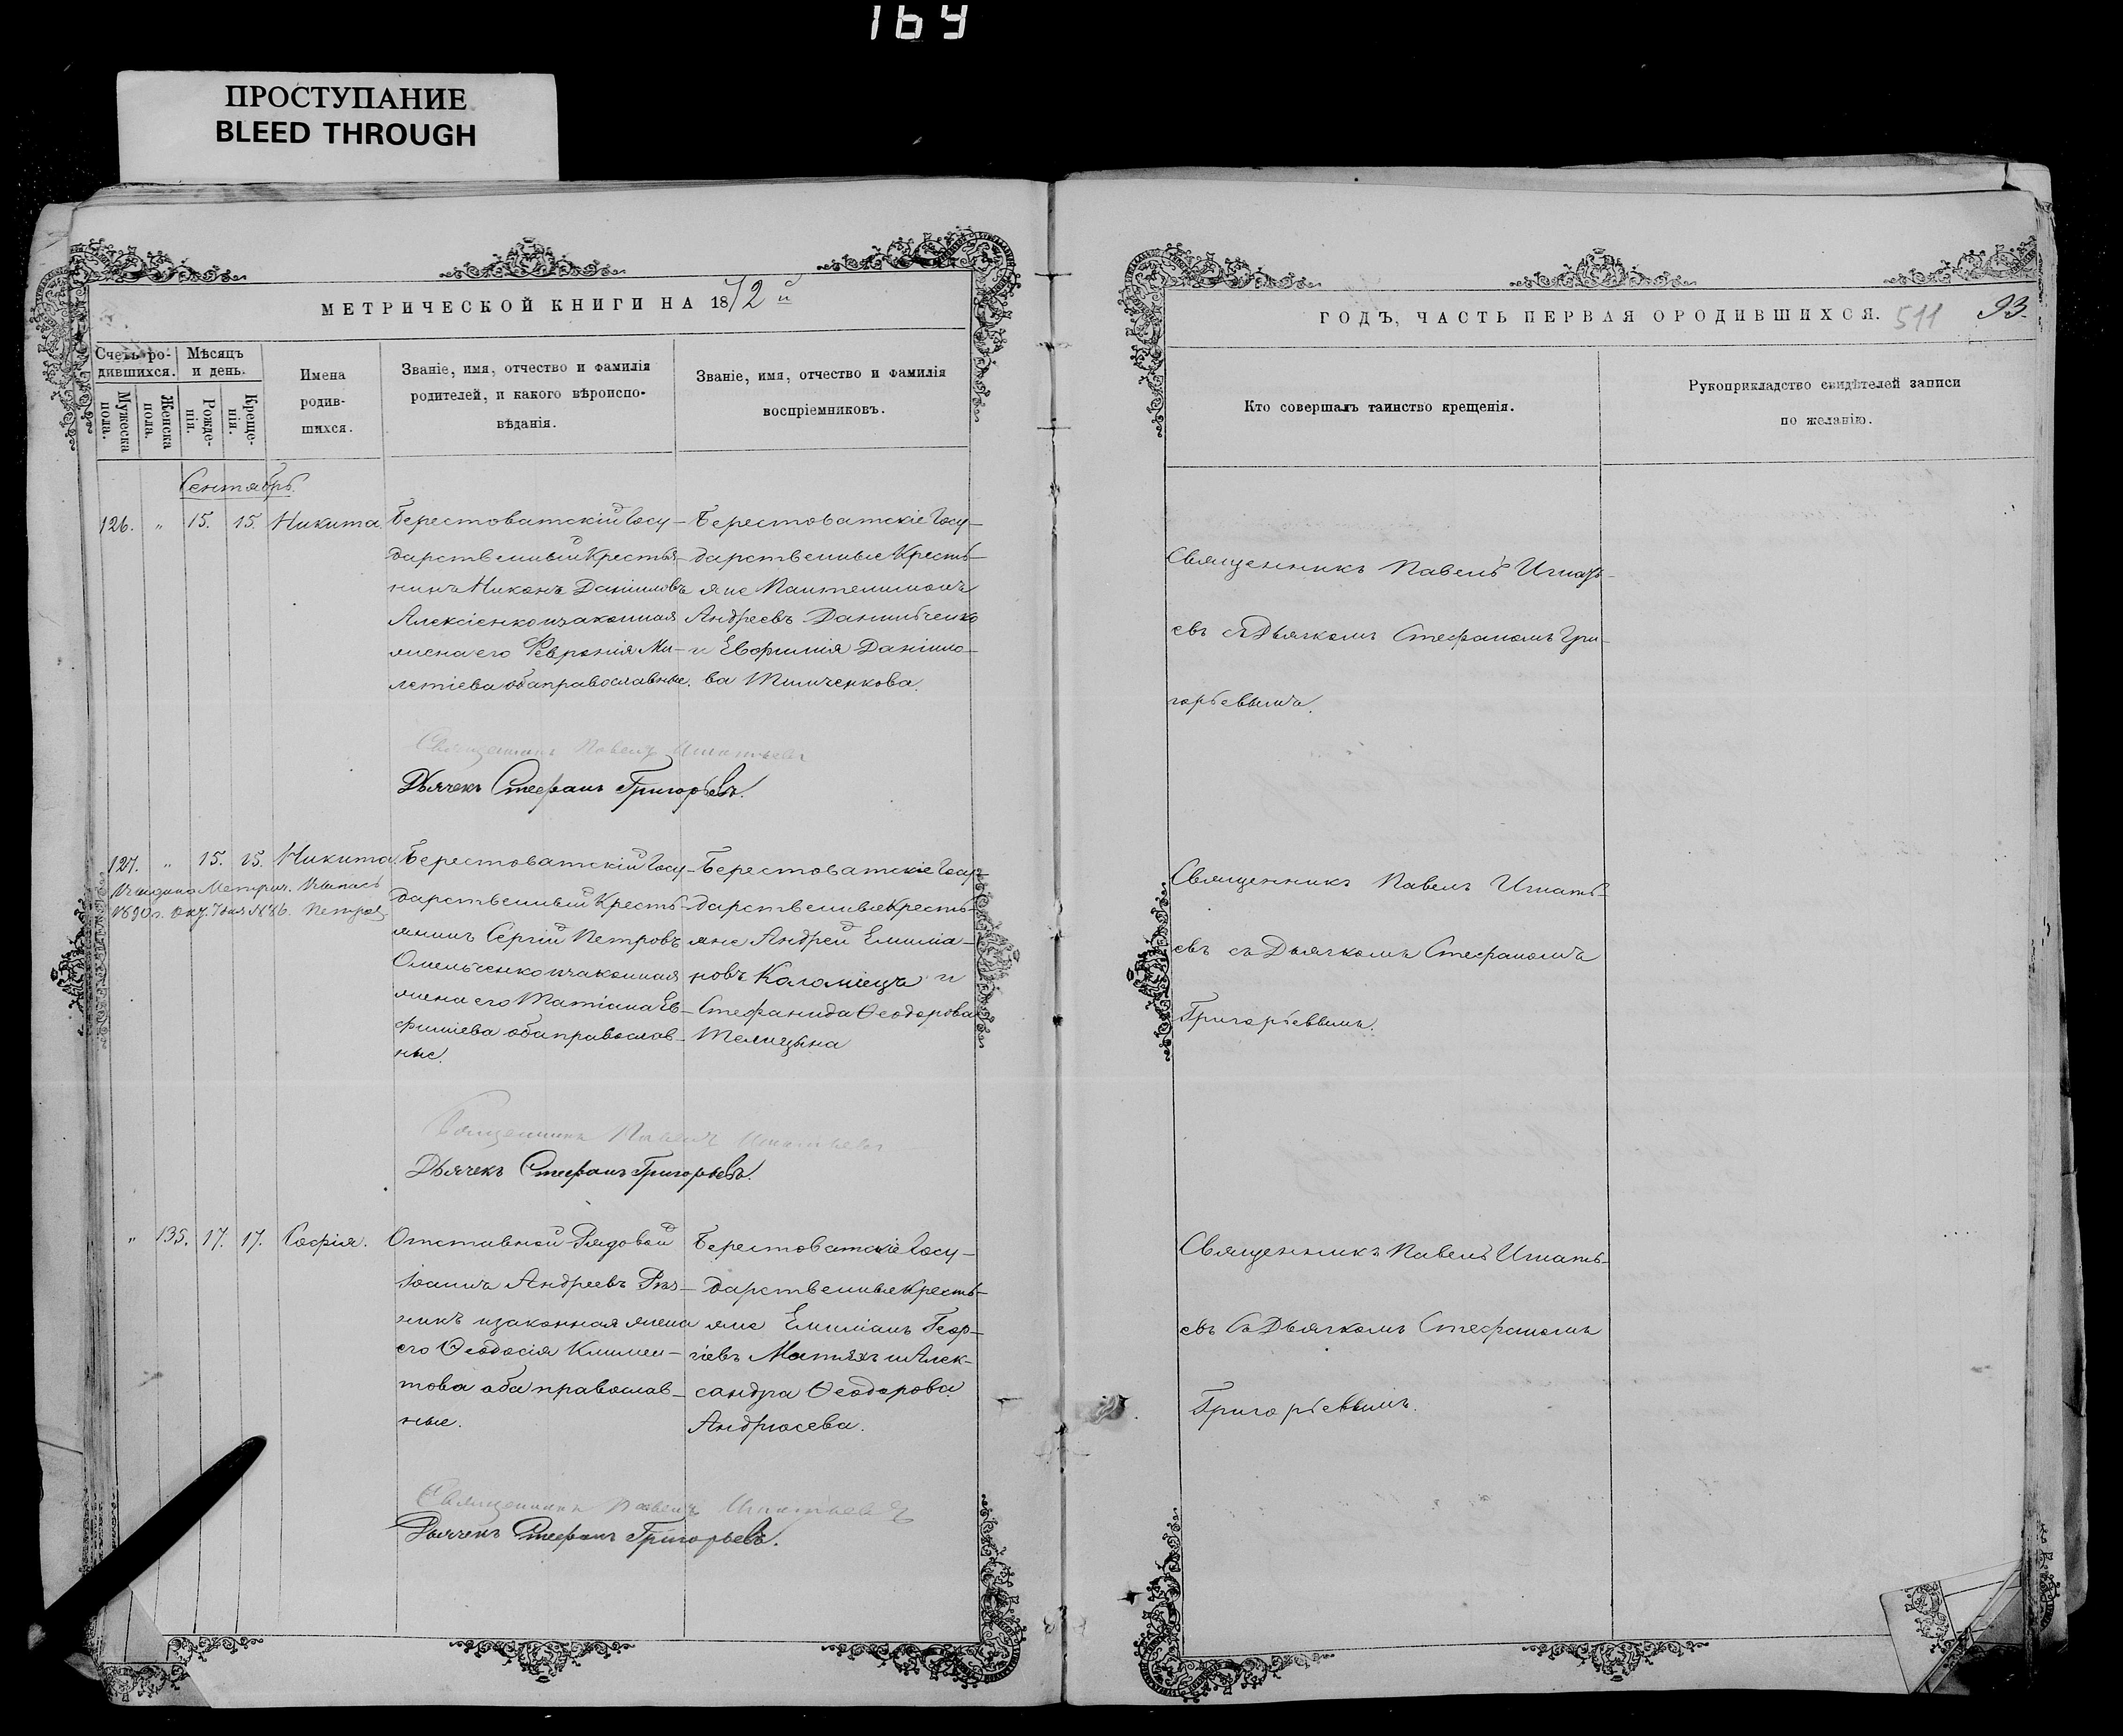 169
ПРОСТУПАНИЕ
BLEED THROUGH
МЕТРИЧЕСКОЙ КНИГИ НА 1872й
Счетъ ро-
дившихся.
Мѣсяцъ
и день.
Мужеска
пола.
Женска
пола.
Рожде-
нія.
Креще-
нія.
Имена
родив-
шихся.
Званіе, имя, отчество и фамилія
родителей, и какого вѣроиспо-
вѣданія.
Званіе, имя, отчество и фамилія
воспріемниковъ.
Сентябрь.
126. " 15. 15. Никита.
Берестоватскій Госу-
дарственный Крестья-
нинъ Никонъ Даніиловъ
Алексіенко и законная
жена его Февронія Ми-
летіева оба православные.
Берестоватскіе Госу-
дарственные Кресть-
яне Пантелимонъ
Андреевъ Данильченко
и Евфимія Даніило-
ва Тимченкова.
Священникъ Павелъ Игнатьевъ
Дьячекъ Стефанъ Григорьевъ.
127. " 15. 15. Никита.
Выдана Метрич. Выпись
1890 г. 7 дня № 86.
Берестоватскій Госу-
дарственный Кресть-
янинъ Сергій Петровъ
Омельченко и законная
жена его Татіана Ев-
фиміева оба православ-
ные.
Берестоватскіе Госу-
дарственные Кресть-
яне Андрей Емиліа-
новъ Коломіецъ и
Стефанида Ѳеодорова
Телицына
Священникъ Павелъ Игнатьевъ
Дьячекъ Стефанъ Григорьевъ.
" 135. 17. 17. Софія.
Отставной Рядовой
Іоаннъ Андреевъ Рѣз-
никъ и законная жена
его Ѳеодосія Климен-
това оба православ-
ные.
Берестоватскіе Госу-
дарственные Кресть-
яне Емиліанъ Геор-
гіевъ Матяхъ и Алек-
сандра Ѳеодорова
Андрюсева.
Священникъ Павелъ Игнатьевъ
Дьячекъ Стефанъ Григорьевъ.
ГОДЪ, ЧАСТЬ ПЕРВАЯ О РОДИВШИХСЯ. 511 93.
Кто совершалъ таинство крещенія.
Рукоприкладство свидѣтелей записи
по желанію.
Священникъ Павелъ Игнать-
евъ съ Дьячкомъ Стефаномъ Гри-
горьевымъ.
Священникъ Павелъ Игнать-
евъ съ Дьячкомъ Стефаномъ
Григорьевымъ.
Священникъ Павелъ Игнать-
евъ съ Дьячкомъ Стефаномъ
Григорьевымъ.